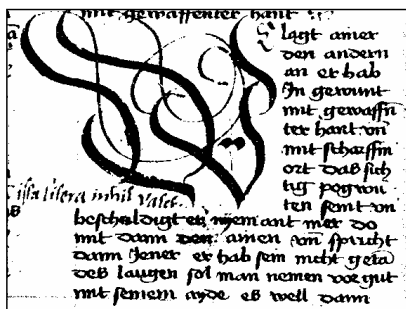 mit gewaffenter hant
lagt ainer
den andern
an er hab
In gewunt
mit gewaffn
ter hant vn̄
mit scharffm
ort daß sich
tig pogwn
ten semt vn
ista litera nihil valet
beschuldigt er nyemant mer do
mit dann den ainen vn̄ spricht
dann Jener er hab sein nicht geta
deß laugen sol man nemen vor gut
mit seinem ayde eß well dann